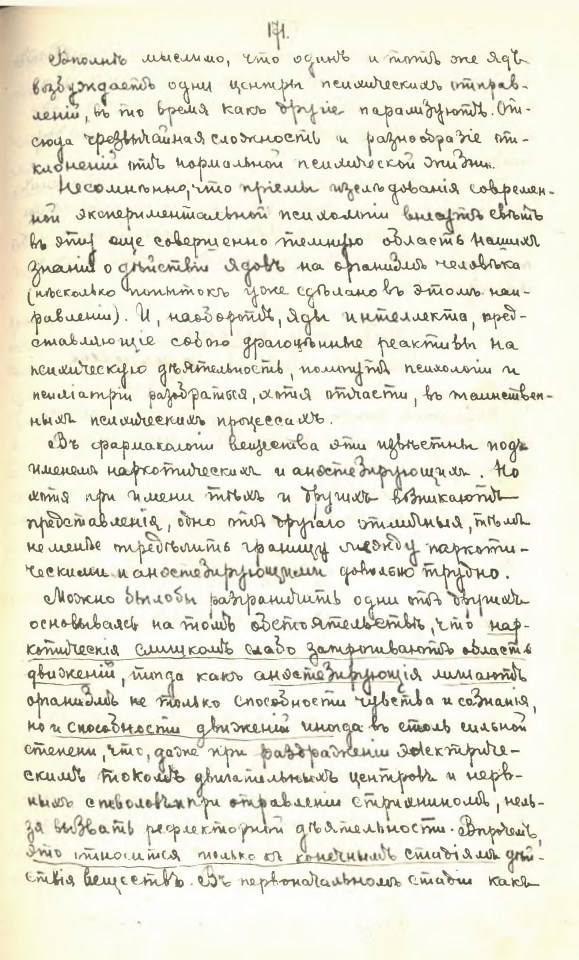 171.
Вполнѣ мыслимо, что одинъ и тотъ же ядъ
возбуждаетъ одни центры психическихъ отправ-
леній, въ то время какъ другіе парализуютъ. От-
сюда чрезвычайная сложность и разнообразіе от-
клоненій отъ нормальной психической жизни.
Несомнѣнно, что пріемы изслѣдованія современ-
ной экспериментальной психологіи внесутъ свѣтъ
въ эту еще совершенно темную область нашихъ
знаній о дѣйствіи ядовъ на организмъ человѣка
(нѣсколько попытокъ уже сдѣлано въ этомъ нап-
равленіи). И, наоборотъ, яды интеллекта, пред-
ставляющіе собою драгоцѣнные реактивы на
психическую дѣятельность, помогутъ психологіи и
психіатріи разобраться, хотя отчасти, въ таинствен-
ныхъ психическихъ процессахъ.
Въ фармакологіи вещества эти извѣстны подъ
именемъ наркотическихъ и анэстезирующихъ. Но
хотя при имени тѣхъ и другихъ возникаютъ
представленія, одно отъ другаго отличныя, тѣмъ
не менѣе опредѣлить границу между наркоти-
ческими и анэстезирующими довольно трудно.
Можно было бы разграничить одни отъ другихъ
основываясь на томъ обстоятельствѣ, что нар-
котическія слишкомъ слабо затрогиваютъ область
движеній, тогда какъ анэстезирующія лишаютъ
организмъ не только способности чувства и сознанія,
но и способности движеній иногда въ столь сильной
степени, что, даже при раздраженіи электриче-
скимъ токомъ двигательныхъ центровъ и нерв-
ныхъ стволовъ и при отравленіи стрихниномъ, нель-
зя вызвать рефлекторной дѣятельности. Впрочемъ,
это относится только къ конечнымъ стадіямъ дѣй-
ствія веществъ. Въ первоначальномъ стадіи какъ